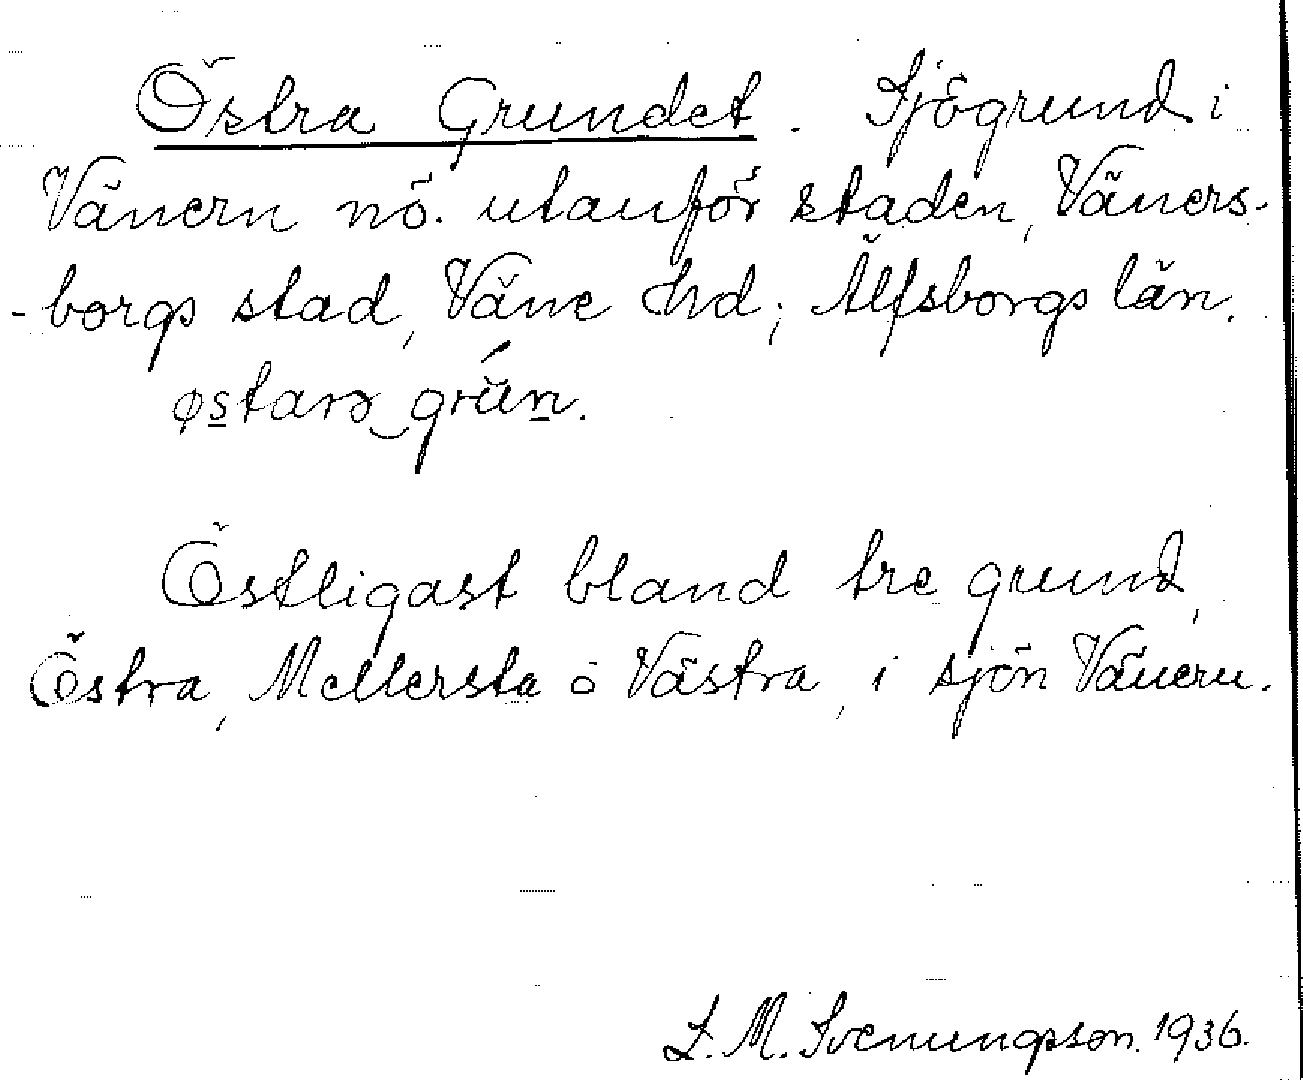 Östra Grundet. Sjögrund i
Vänern nö. utanför staden, Väners-
-borgs stad, Väne hd; Älfsborgs län.
østarə grún.
Östligast bland tre grund,
Östra, Mellersta o Västra, i sjön Vänern.
L. M. Svenungsson. 1936.